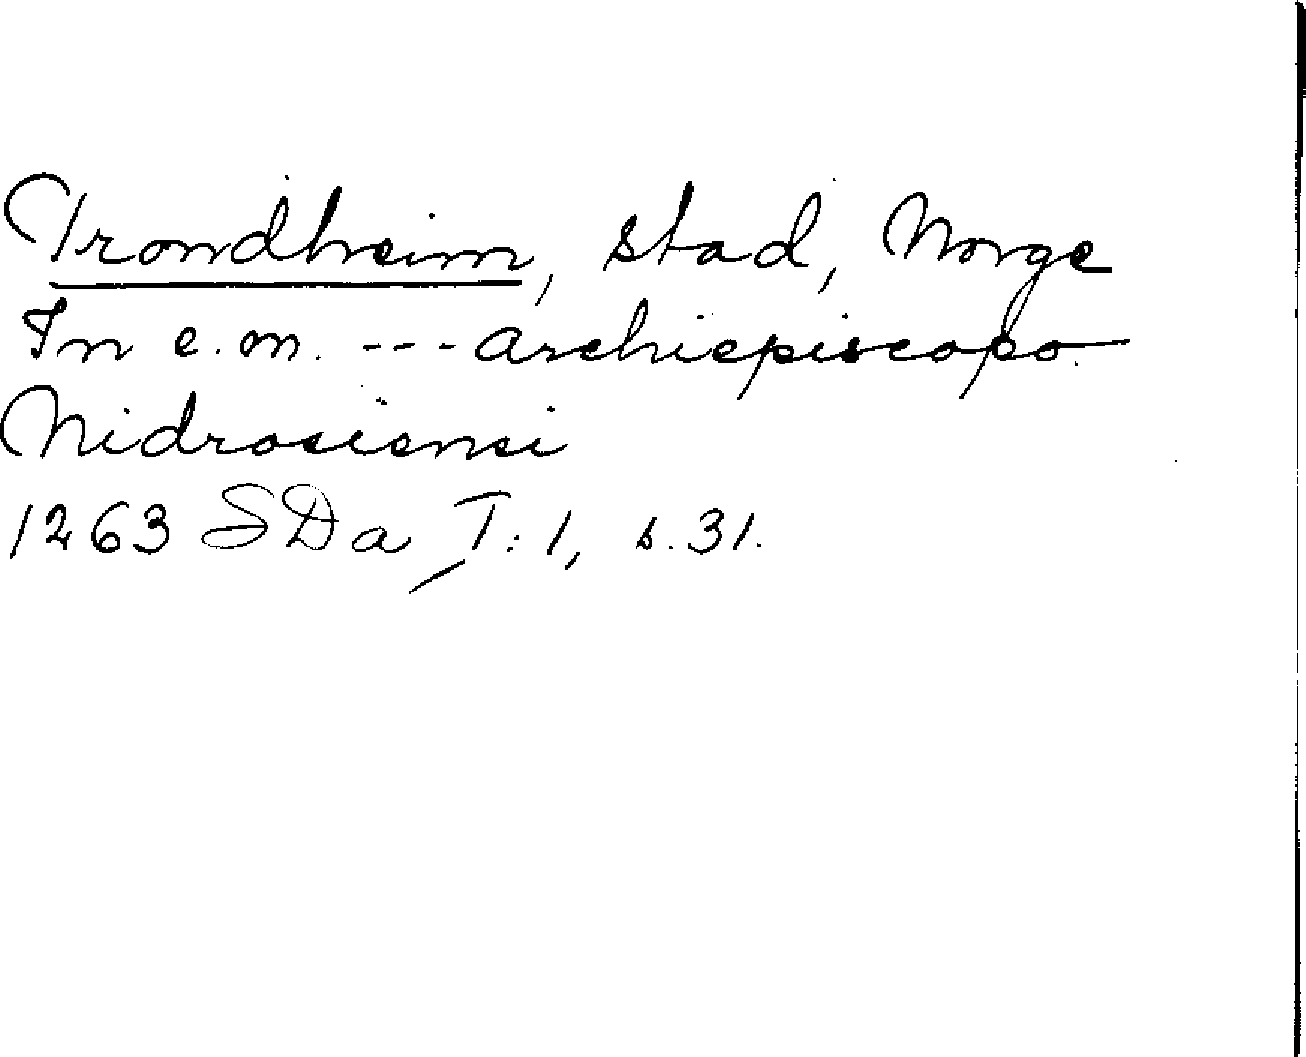 Trondheim, stad, Norge
In c.m. --- archiepiscopo
Nidrosiensi
1263 SDa T:1, s. 31.